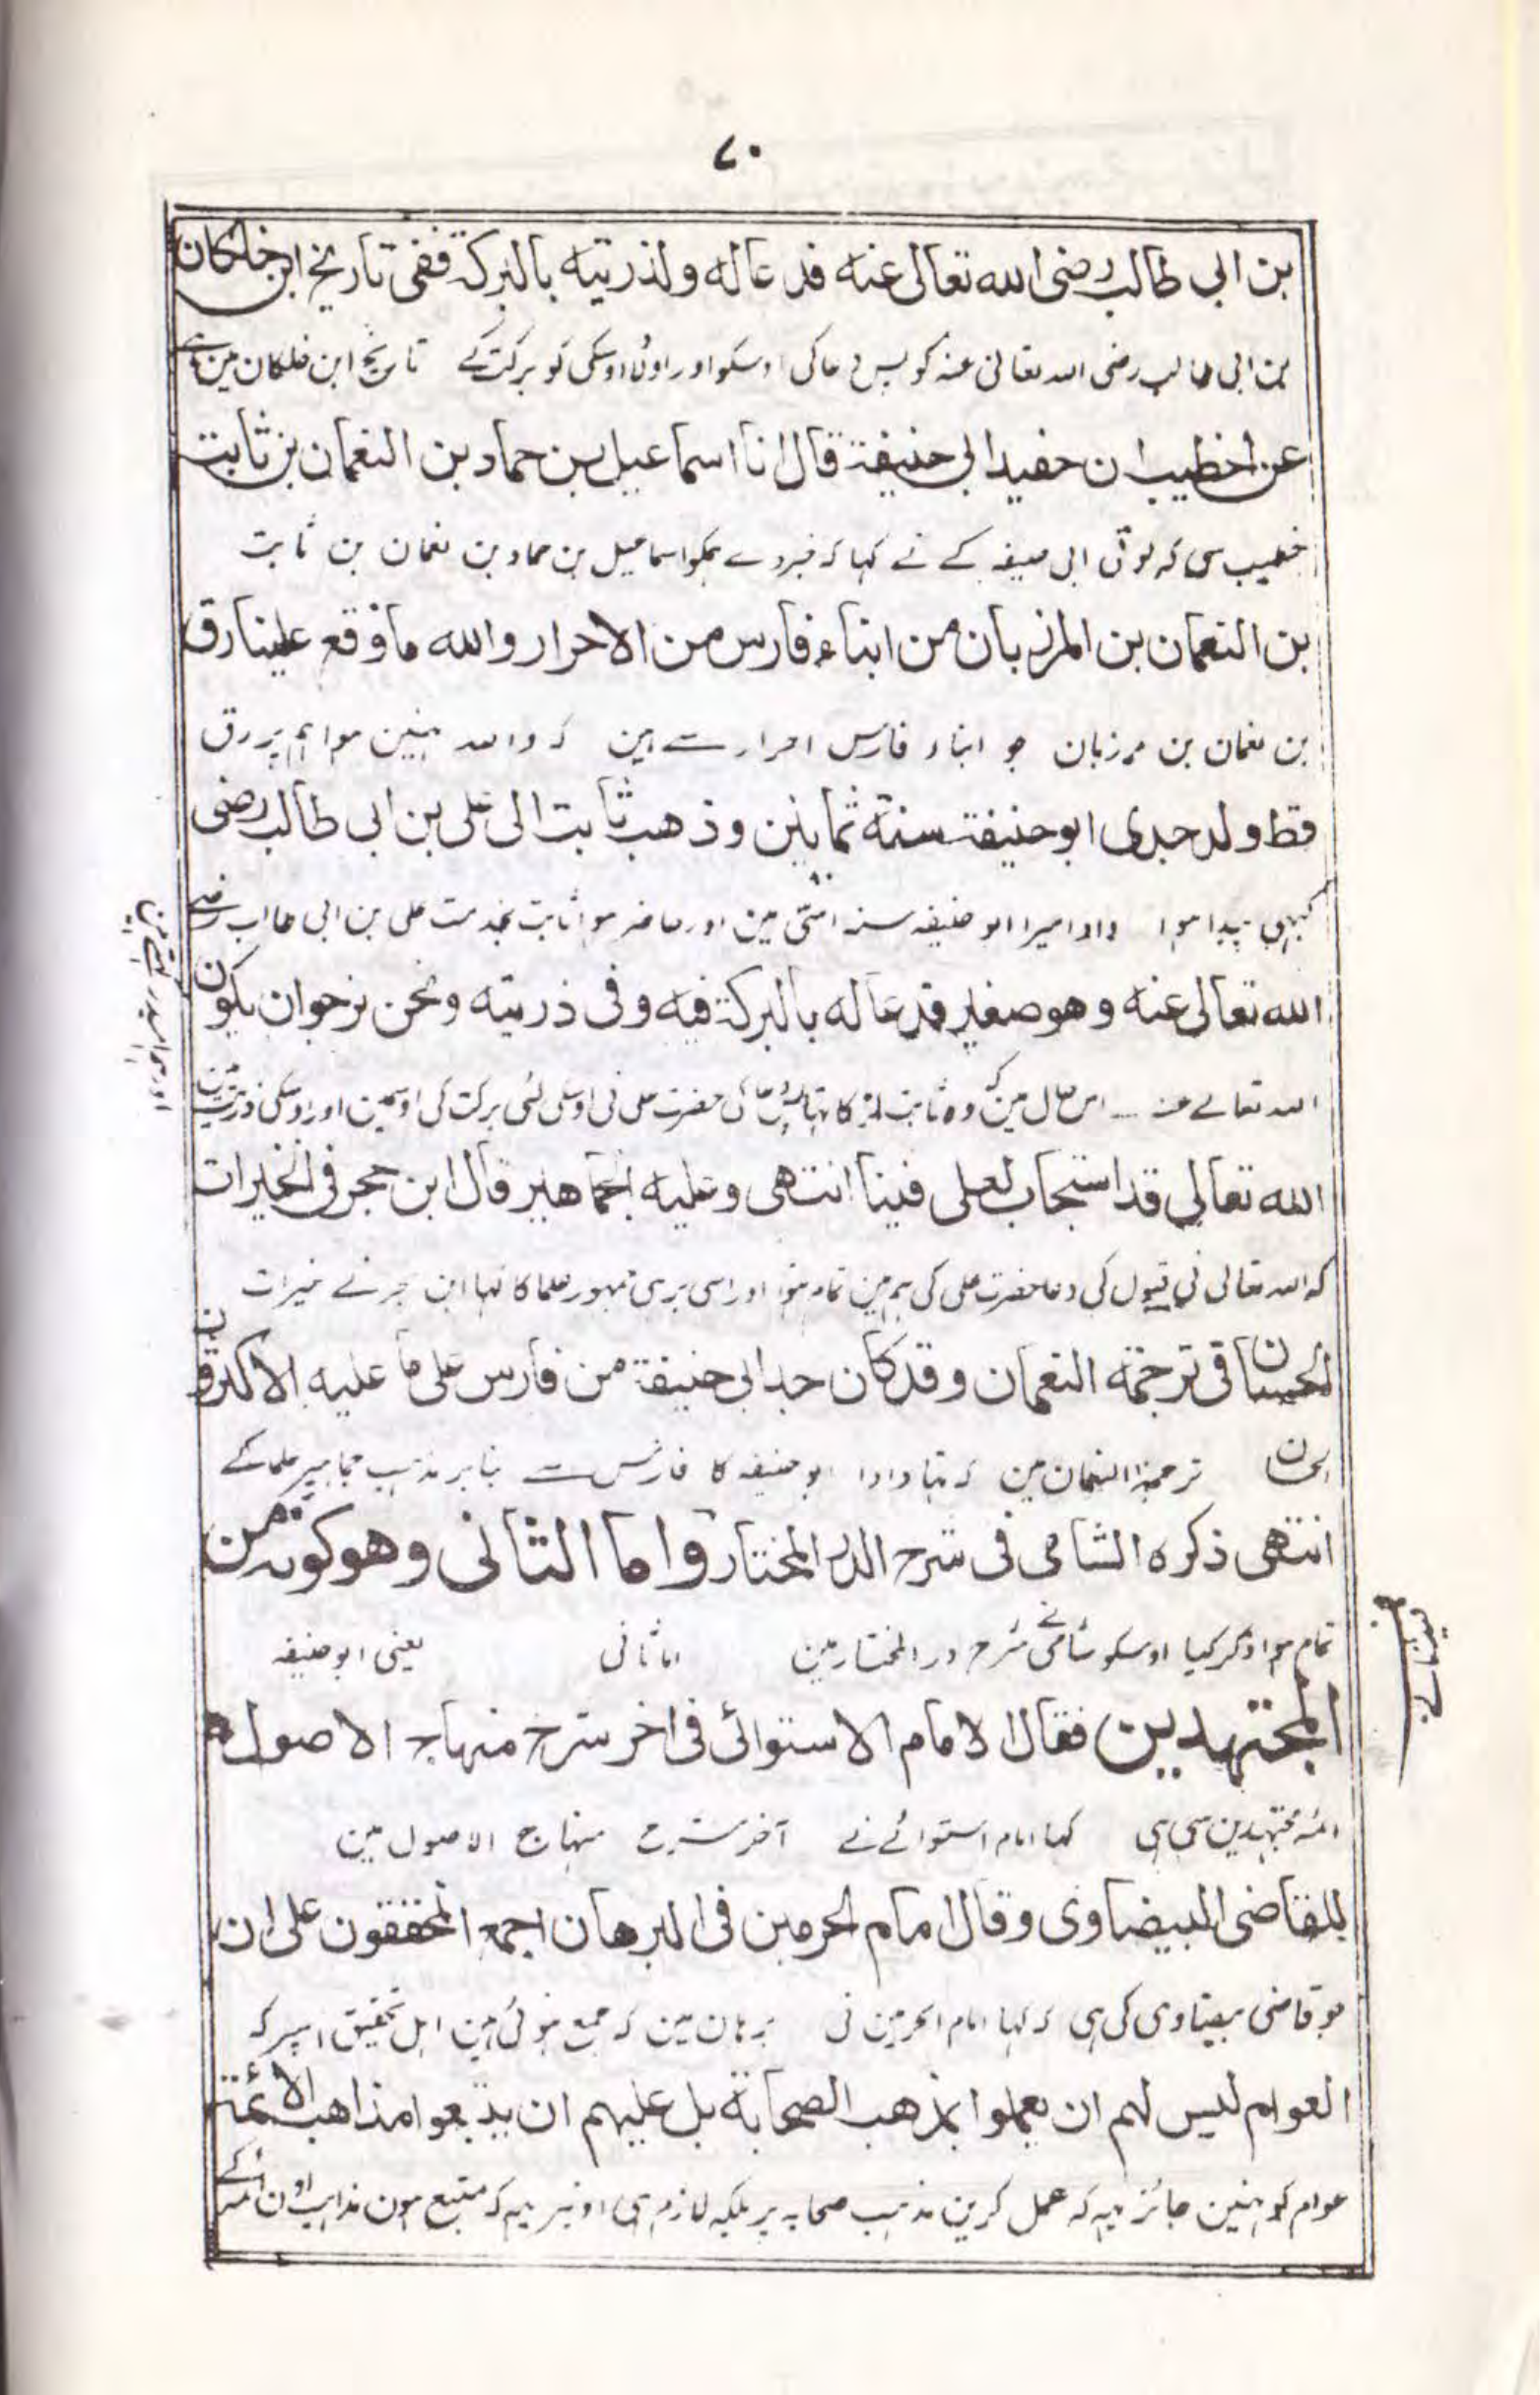 ۷۰
بن ابی طالب رضی الله تعالی عنه فدعا له ولذریته بالبرکة ففی تاریخ ابن خلکان
بن ابی طالب رضی الله تعالی عنہ کو پس دعا کی اوسکو اور اولاد اوسکی کو برکت کے تاریخ ابن خلکان مین ہے
عن الخطیب ان حفید ابی حنیفة قال انا اسماعیل بن حماد بن النعمان بن ثابت
خطیب سی کہ پوتی ابی حنیفہ کے نے کہا کہ خبر دے ہمکو اسماعیل بن حماد بن نعمان بن ثابت
بن النعمان بن المرزبان من ابناء فارس من الاحرار والله ما وقع علینا رق
بن نعمان بن مرزبان جو ابناء فارس احرار سے ہین کہ والله نہین ہوا ہم پر رق
قط ولد جدی ابو حنیفة سنة ثمانین وذهب ثابت الی علی بن ابی طالب رضی
۸۰
کبہی پیدا ہوا دادا میرا ابو حنیفہ سنہ اسّی مین اور حاضر ہوا ثابت بخدمت علی بن ابی طالب رضی
الله تعالی عنه وهو صغیر فدعا له بالبرکة فیه وفی ذریته ونحن نرجو ان یکون
الله تعالے عنہ اس حال مین کہ وہ ثابت لڑکا تہا پس دعا کی حضرت علی نی اوسکی لئی برکت کی اوسمین اور اوسکی ذریت مین
اور ہم امیدر کہتے ہین
الله تعالی قد استجاب لعلی فینا انتهی وعلیه الجماهیر قال ابن حجر فی الخیرات
کہ الله تعالی نی قبول کی دعا حضرت علی کی ہم مین تمام ہوا اور اسی پر ہی جمہور علما کا کہا ابن حجر نے خیرات
الحسان فی ترجمة النعمان وقد کان جد ابی حنیفة من فارس علی ما علیه الاکثرون
الحسان ترجمة النعمان مین کہ تہا دادا ابو حنیفہ کا فارس سے بنا بر مذہب جماہیر علما کے
انتهی ذکره الشامی فی شرح الدر المختار واما الثانی وهو کونه من
تمام ہوا ذکر کیا اوسکو شامی نے شرح در المختار مین اما ثانی یعنی ابو حنیفہ
المجتهدین فقال الامام الاستوائی فی اخر شرح منهاج الاصول
ائمہ مجتہدین سی ہی کہا امام استوائے نے آخر شرح منہاج الاصول مین
للقاضی البیضاوی وقال امام الحرمین فی البرهان اجمع المحققون علی ان
جو قاضی بیضاوی کی ہی کہ کہا امام الحرمین نی برہان مین کہ جمع ہوئی ہین اہل تحقیق اسپر کہ
العوام لیس لهم ان یعملوا بمذهب الصحابة بل علیهم ان یتبعوا مذاهب الائمة
عوام کو نہین جائز یہ کہ عمل کرین مذہب صحابہ پر بلکہ لازم ہی اونپر یہ کہ متبع ہون مذاہب اون ائمہ کے